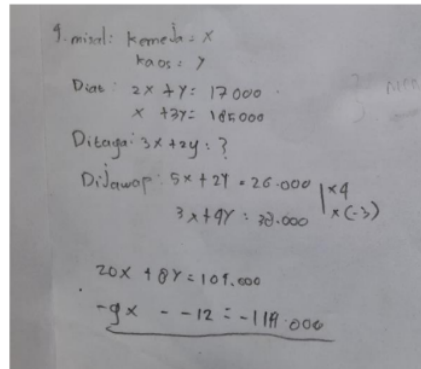 9. misal: kemeja = x
kaos = y
Diat : 2x + y = 17 000
x + 3y = 185000
Ditaya: 3x + 2y : ?
DiJawap : 5x + 2y = 26.000 | x4
3x + 4y = 38.000 | x (-3)
20x + 8y = 104.000
-9x - -12 = -114.000